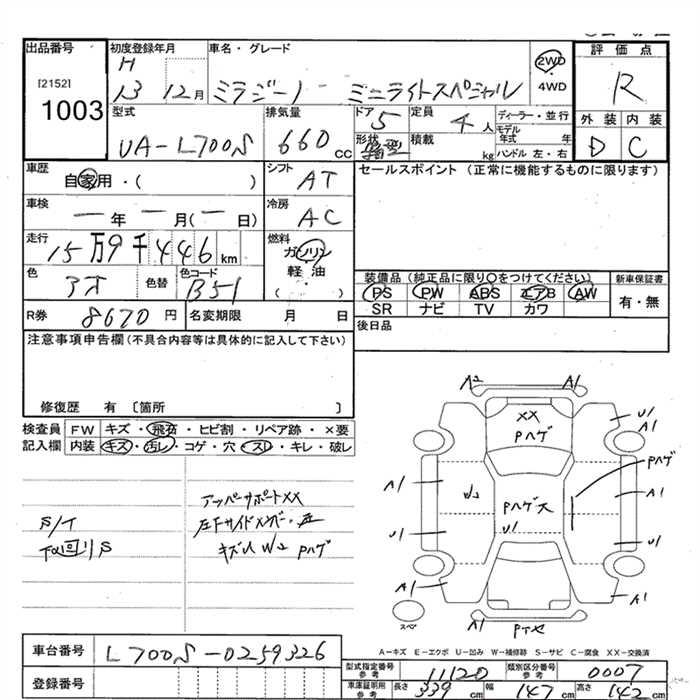 出品番号
[2152]
1003
初度登録年月
H
13 12月
車名・グレード
ミラジーノ ミニライトスペシャル
2WD
4WD
評価点
R
外装 内装
D C
型式
UA-L700S
排気量
660 CC
ドア
5
定員
4 人
形状
積載
kg
ディーラー・並行
モデル
年式 年
ハンドル 左・右
車歴
自家用・( )
シフト
AT
セールスポイント (正常に機能するものに限ります)
車検
一 年 一 月(一 日)
冷房
AC
走行
15万9千446 km
燃料
ガソリン
軽油
( )
色
アオ
色替
色コード
B51
装備品(純正品に限り○をつけてください)
新車保証書
PS PW ABS エアB AW
SR ナビ TV カワ
有・無
R券
8670 円
名変期限 月 日
後日品
注意事項申告欄(不具合内容等は具体的に記入して下さい)
修復歴 有 〔箇所 〕
検査員
記入欄
FW キズ・飛石・ヒビ割・リペア跡・×要
内装 キズ・汚レ・コゲ・穴・スレ・キレ・破レ
アッパーサポートXX
S/T
左下サイドメンバー
下回りS
キズ凹 W2 Pハゲ
A2 A1
XX
Pハゲ
U1
A1
Pハゲ
A1
W2
Pハゲ大
A1
U1
U1
U1
A1
A1
A1
A1
スペア
A-キズ E-エクボ U-凹み W-補修跡 S-サビ C-腐食 XX-交換済
車台番号
L700S-0259326
登録番号
型式指定番号
参考
11120
類別区分番号
参考
0007
車庫証明用
参考
長さ 339 cm
幅 147 cm
高さ 142 cm